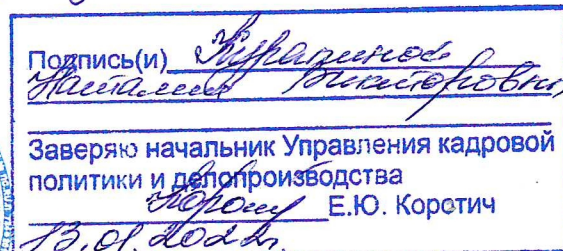 Подпись(и) Курапиной
Наталии Викторовны
Заверяю начальник Управления кадровой
политики и делопроизводства
Е.Ю. Коротич
13.01.2022г.